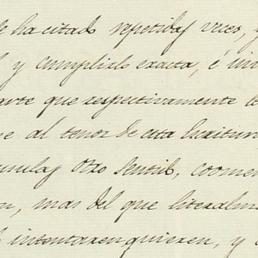 se ha citado repetidas veces, y
y cumplirlo exacta, é in
parte que respectivamente le
e al tenor de esta Escritura
formulas otro sentido, coomen
on, mas del que literalm
intentaren quieren, y